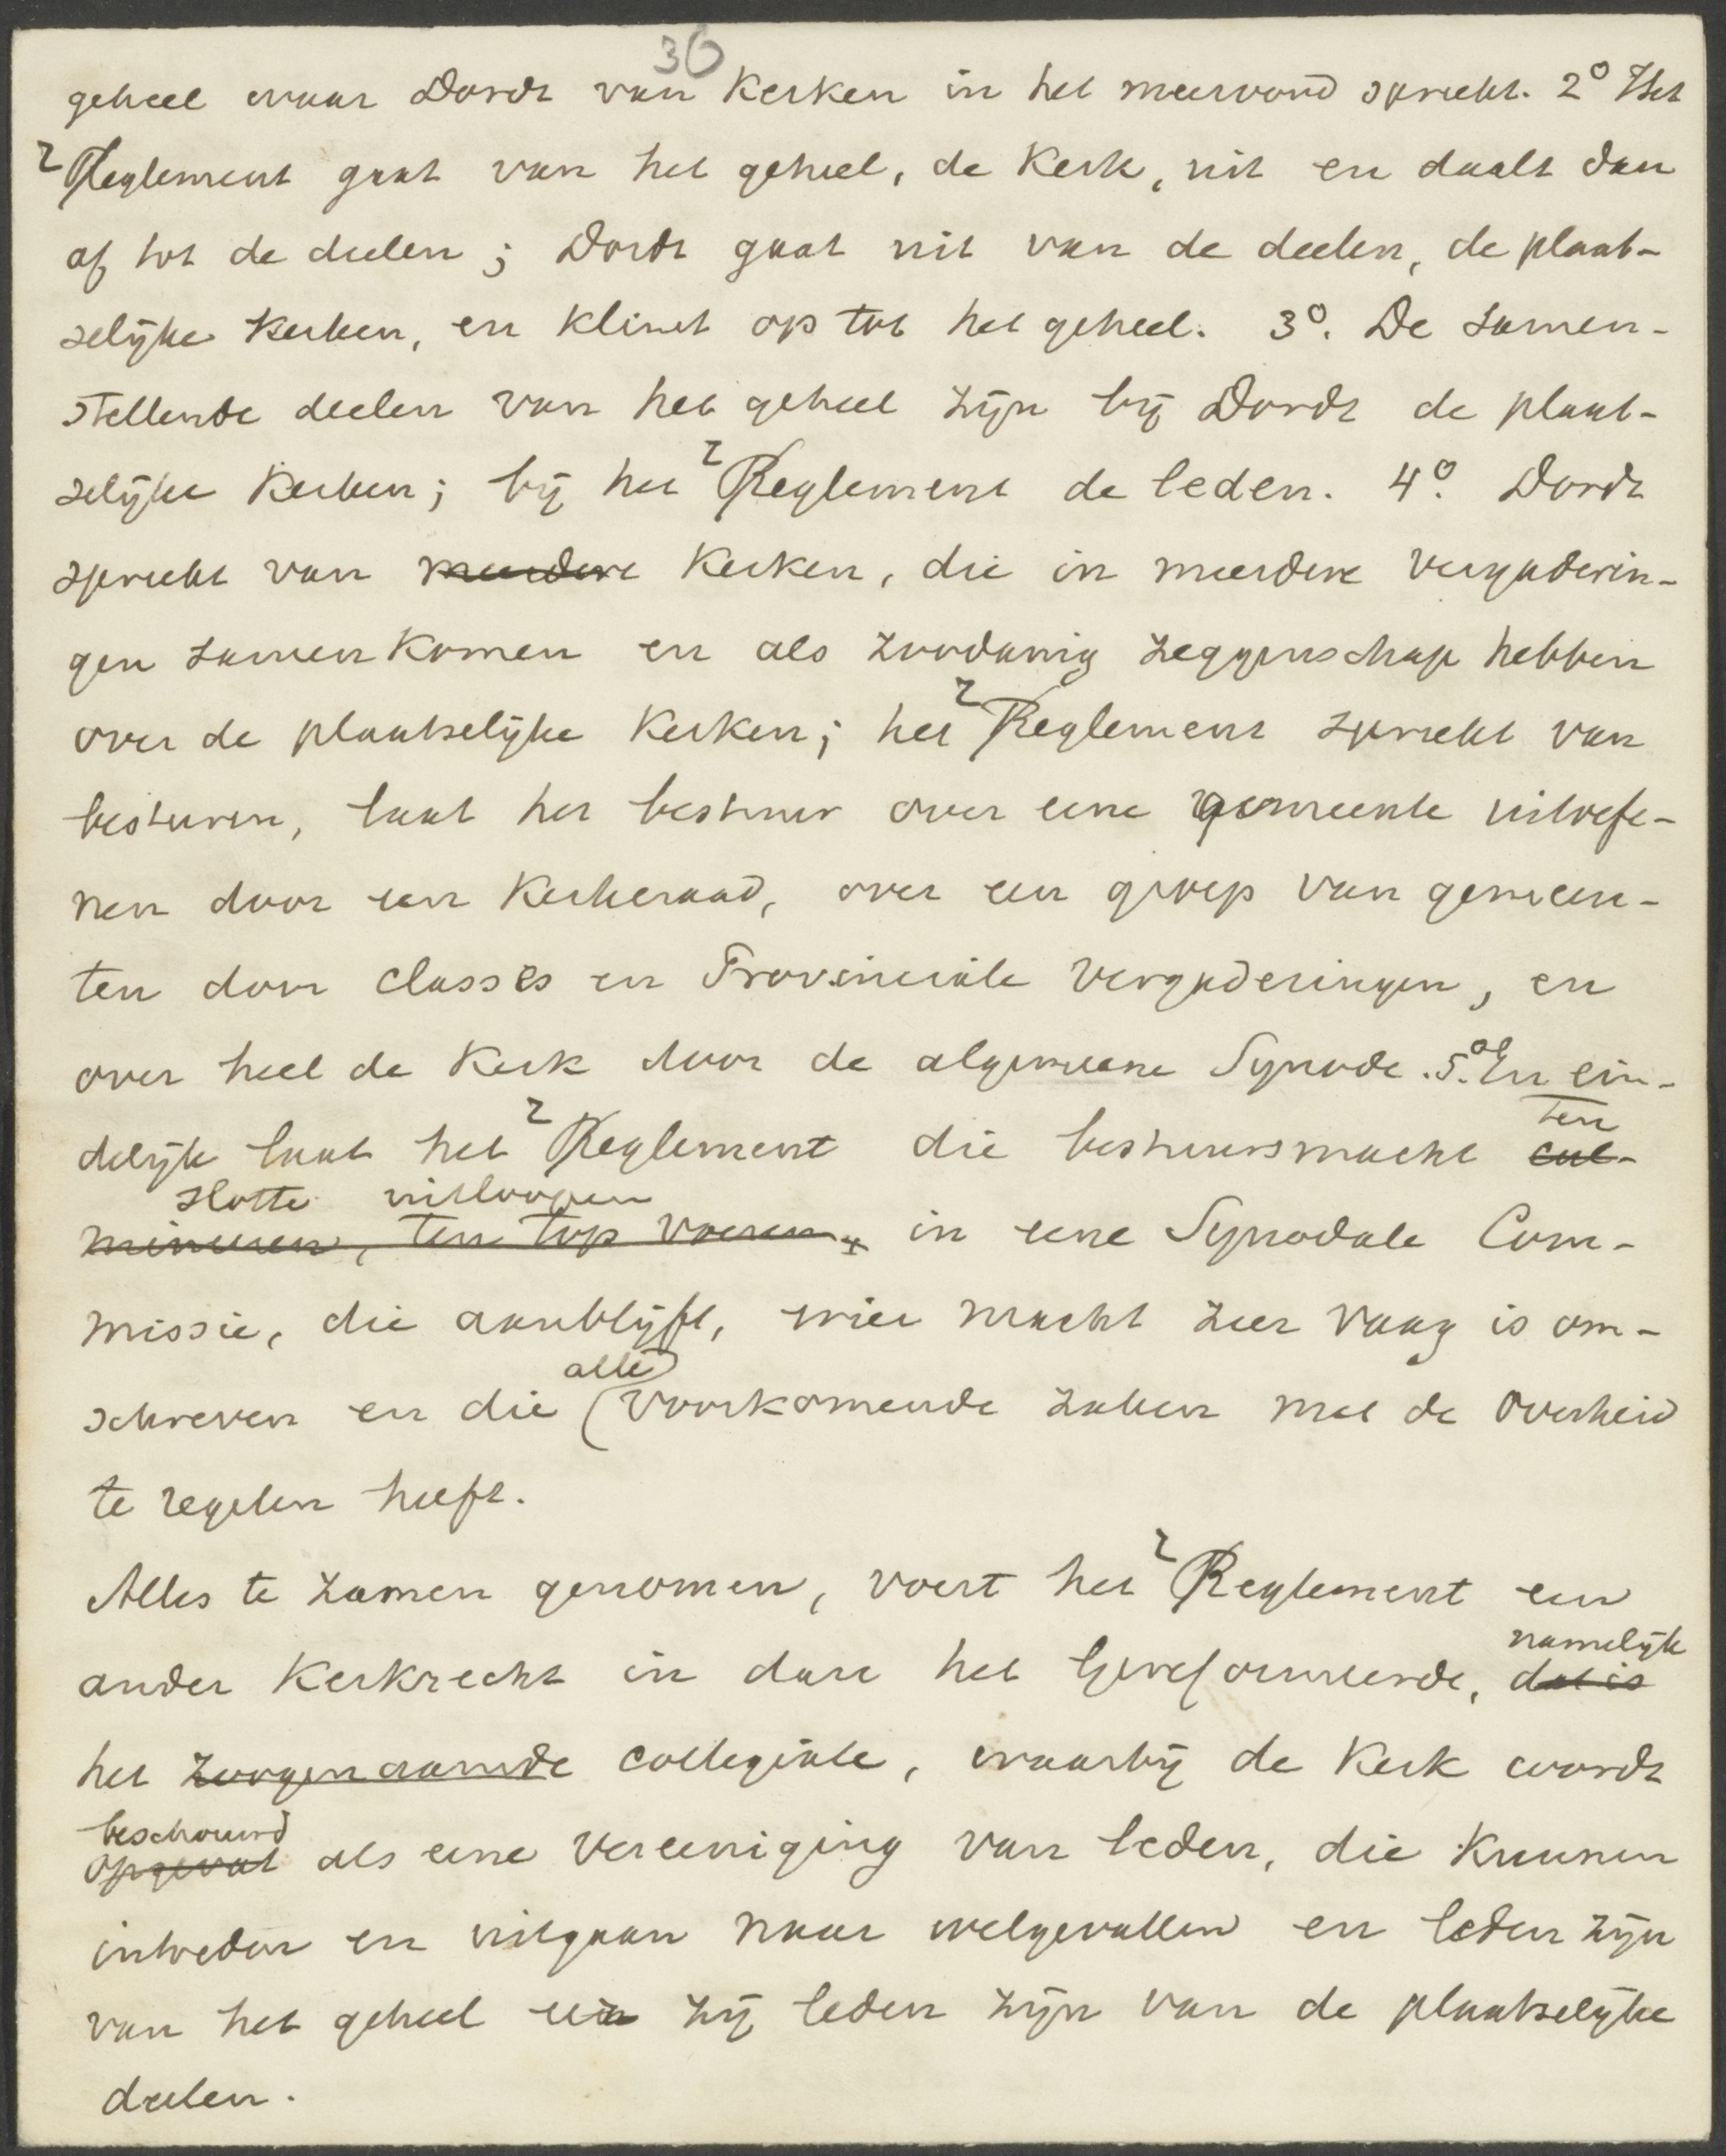 36
geheel waar Dordt van Kerken in het meervoud spreekt. 2° Het
Reglement gaat van het geheel, de Kerk, uit en daalt dan
af tot de deelen; Dordt gaat uit van de deelen, de plaat-
selijke Kerken, en klimt op tot het geheel. 3°. De samen-
stellende deelen van het geheel zijn bij Dordt de plaat-
selijke Kerken; bij het Reglement de leden. 4°. Dordt
spreekt van meerdere Kerken, die in meerdere vergaderin-
gen samenkomen en als zoodanig zeggenschap hebben
over de plaatselijke Kerken; het Reglement spreekt van
besturen, laat het bestuur over eene gemeente uitoefe-
nen door een Kerkeraad, over een groep van gemeen-
ten door classes en Provinciale Vergaderingen, en
over heel de Kerk door de algemeene Synode. 5. En ein-
ten
delijk laat het Reglement die bestuursmacht cul-
slotte uitloopen
mineren, ten top voeren in eene Synodale Com-
missie, die aanblijft, wier macht zeer vaag is om-
alle
schreven en die voorkomende zaken met de Overheid
te regelen heeft.
Alles te zamen genomen, voert het Reglement een
namelijk
ander Kerkrecht in dan het Gereformeerde, dat is
het zoogenaamde collegiale, waarbij de Kerk wordt
beschouwd
opgevat als eene Vereeniging van leden, die kunnen
intreden en uitgaan naar welgevallen en leden zijn
van het geheel zij leden zijn van de plaatselijke
deelen.